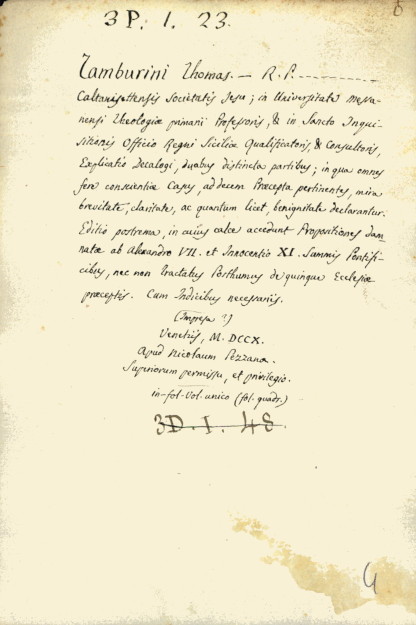 6
3 P. 1. 23.
Tamburini Thomas. — R. P. ----------
Caltanisettensis Societatis Jesu; in Universitate Messa-
nensi Theologiæ primarii Professoris, & in Sancto Inqui-
sitionis Officio Regni Siciliæ Qualificatoris, & Consultoris,
Explicatio Decalogi, duabus distincta partibus; in qua omnes
fere conscientiæ Casus, ad decem Præcepta pertinentes, mira
brevitate, claritate, ac quantum licet, benignitate declarantur.
Editio postrema, in cujus calce accedunt Propositiones Dam-
natæ ab Alexandro VII. et Innocentio XI. Summis Pontifi-
cibus, nec non tractatus Posthumus de quinque Ecclesiæ
præceptis. Cum Indicibus necessariis.
(Impresa ?)
Venetiis, M. DCCX.
Apud Nicolaum Pezzana.
Superiorum permissu, et privilegio.
in-fol-Vol. unico (fol. quadr.)
3D. I. 48